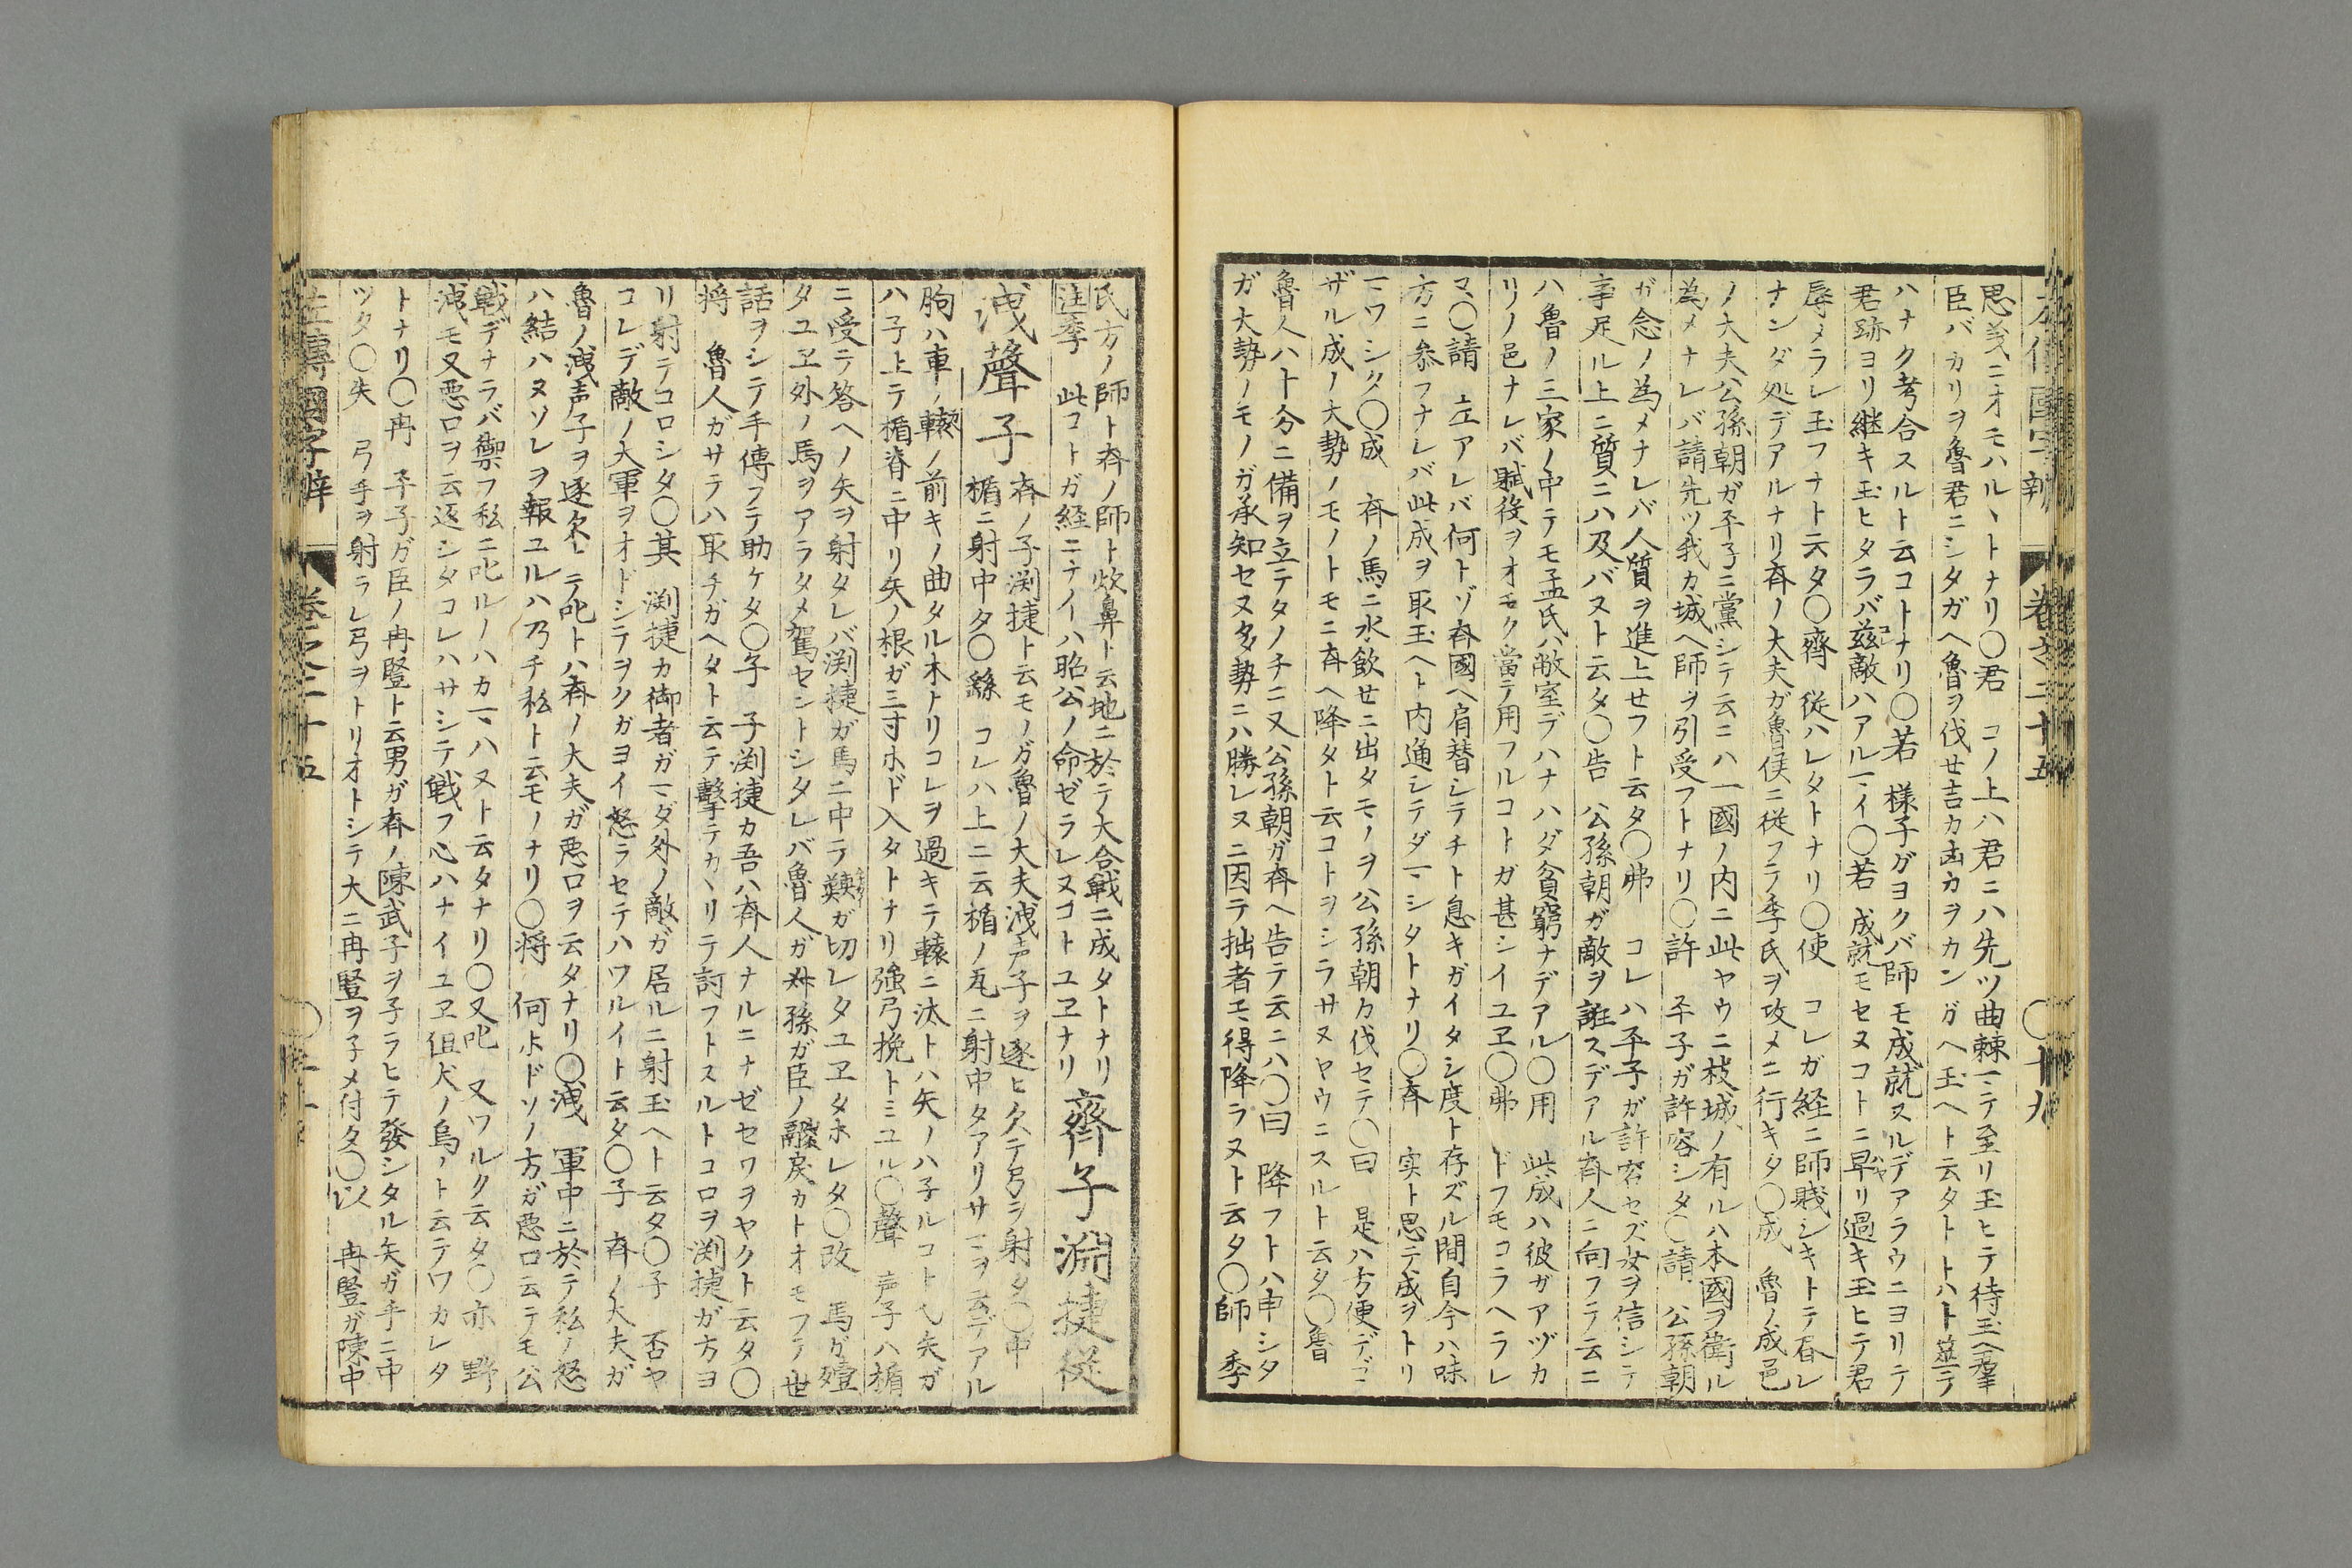 左傳國字辯 卷之二十五 〇十九
思義ニオモハルヽトナリ〇君 コノ上ハ君ニハ先ツ曲棘マテ至リ玉ヒテ待玉ヘ羣
臣バカリヲ魯君ニシタガヘ魯ヲ伐セ吉カ凶カヲカンガヘ玉ヘト云タトトハト筮ニテ
ハナク考合スルト云コトナリ〇若 様子ガヨクバ師モ成就スルデアラウニヨリテ
君跡ヨリ継キ玉ヒタラバ茲敵ハアルマイ〇若 成就モセヌコトニ早リ過キ玉ヒテ君
辱メラレ玉フナト云タ〇齊 従ハレタトナリ〇使 コレガ経ニ師賤シキトテ舂レ
ナンダ処デアルナリ斉ノ大夫ガ魯侯ニ従フテ季氏ヲ攻メニ行キタ〇成 魯ノ成邑
ノ大夫公孫朝ガ平子ニ黨シテ云ニハ一國ノ内ニ此ヤウニ枝城ノ有ルハ本國ヲ衛ル
為メナレバ請先ツ我カ城ヘ師ヲ引受フトナリ〇許 平子ガ許容シタ〇請 公孫朝
ガ念ノ為メナレバ人質ヲ進上セフト云タ〇弗 コレハ平子ガ許容セズ女ヲ信シテ
事足ル上ニ質ニハ及バヌト云タ〇告 公孫朝ガ敵ヲ誑スデアル斉人ニ向フテ云ニ
ハ魯ノ三家ノ中テモ孟氏ハ敝室デハナハダ貧窮ナデアル〇用 此成ハ彼ガアヅカ
リノ邑ナレバ賦役ヲオモク當テ用フルコトガ甚シイユヱ〇弗 ドフモコラヘラレ
マ〇請 立アレバ何トゾ斉國ヘ肩替シテチト息キガイタシ度ト存ズル間自今ハ味
方ニ参フナレバ此成ヲ取玉ヘト内通シテダマシタトナリ〇斉 実ト思テ成ヲトリ
マワシタ〇成 斉ノ馬ニ水飲セニ出タモノヲ公孫朝カ伐セテ〇曰 是ハ方便デゴ
ザル成ノ大勢ノモノトモニ斉ヘ降タト云コトヲシラサヌヤウニスルト云タ〇魯
魯人ハト分ニ備ヲ立テタノチニ又公孫朝ガ斉ヘ告テ云ニハ〇曰 降フトハ申シタ
ガ大勢ノモノガ承知セヌ多勢ニハ勝レヌニ因テ拙者モ得降ラヌト云タ〇師 季
氏方ノ師ト斉ノ師ト炊鼻ト云地ニ於テ大合戦ニ成タトナリ
注季 此コトガ経ニナイハ昭公ノ命ゼラレヌコトユヱナリ 齊子淵捷従
洩聲子 斉ノ子渕捷ト云モノガ魯ノ大夫洩声子ヲ逐ヒ欠テ弓ヲ射タ〇中
楯ニ射中タ〇繇 コレハ上ニ云楯ノ瓦ニ射中タアリサマヲ云デアル
胊ハ車ノ轅ノ前キノ曲タル木トリコレヲ過キテ轅ニ汰トハ矢ノハ子ルコト匕矢ガ
ハ子上テ楯脊ニ中リ矢ノ根ガ三寸ホド入タトナリ強弓挽トミユル〇聲 声子ハ楯
ニ受テ答ヘノ矢ヲ射タレバ渕捷ガ馬ニ中テ鞅ガ切レタユヱタホレタ〇改 馬ガ殪
タユヱ外ノ馬ヲアラタメ駕セントシタレバ魯人ガ叔孫ガ臣ノ鬷戻カトオモフテ世
話ヲシテ手傳フテ助ケタ〇子 子渕捷カ吾ハ斉人ナルニナゼセワヲヤクト云タ〇
将 魯人ガサテハ取チガヘタト云テ撃テカヽリテ討フトスルトコロヲ渕捷ガ方ヨ
リ射テコロシタ〇其 渕捷カ御者ガマダ外ノ敵ガ居ルニ射玉ヘト云タ〇子 否ヤ
コレデ敵ノ大軍ヲオドシテヲクガヨイ怒ラセテハワルイト云タ〇子 斉ノ大夫ガ
魯ノ洩声子ヲ逐欠ケテ叱トハ斉ノ大夫ガ悪口ヲ云タナリ〇洩 軍中ニ於テ私ノ怒
ハ結ハヌソレヲ報ユルハ乃チ私ト云モノナリ〇将 何ホドソノ方ガ悪口云テモ公
戦デナラバ禦フ私ニ叱ルノハカマハヌト云タナリ〇又叱 又ワルク云タ〇亦 野
洩モ又悪口ヲ云返シタコレハサシテ戦フ心ハナイユヱ伹犬ノ烏ノト云テワカレタ
トナリ〇冉 平子ガ臣ノ冉豎ト云男ガ斉ノ陳武子ヲ子ラヒテ發シタル矢ガ手ニ中
ツタ〇失 弓手ヲ射ラレ弓ヲトリオトシテ大ニ冉豎ヲ子メ付タ〇以 冉豎ガ陳中
左傳國字辯 卷之二十五